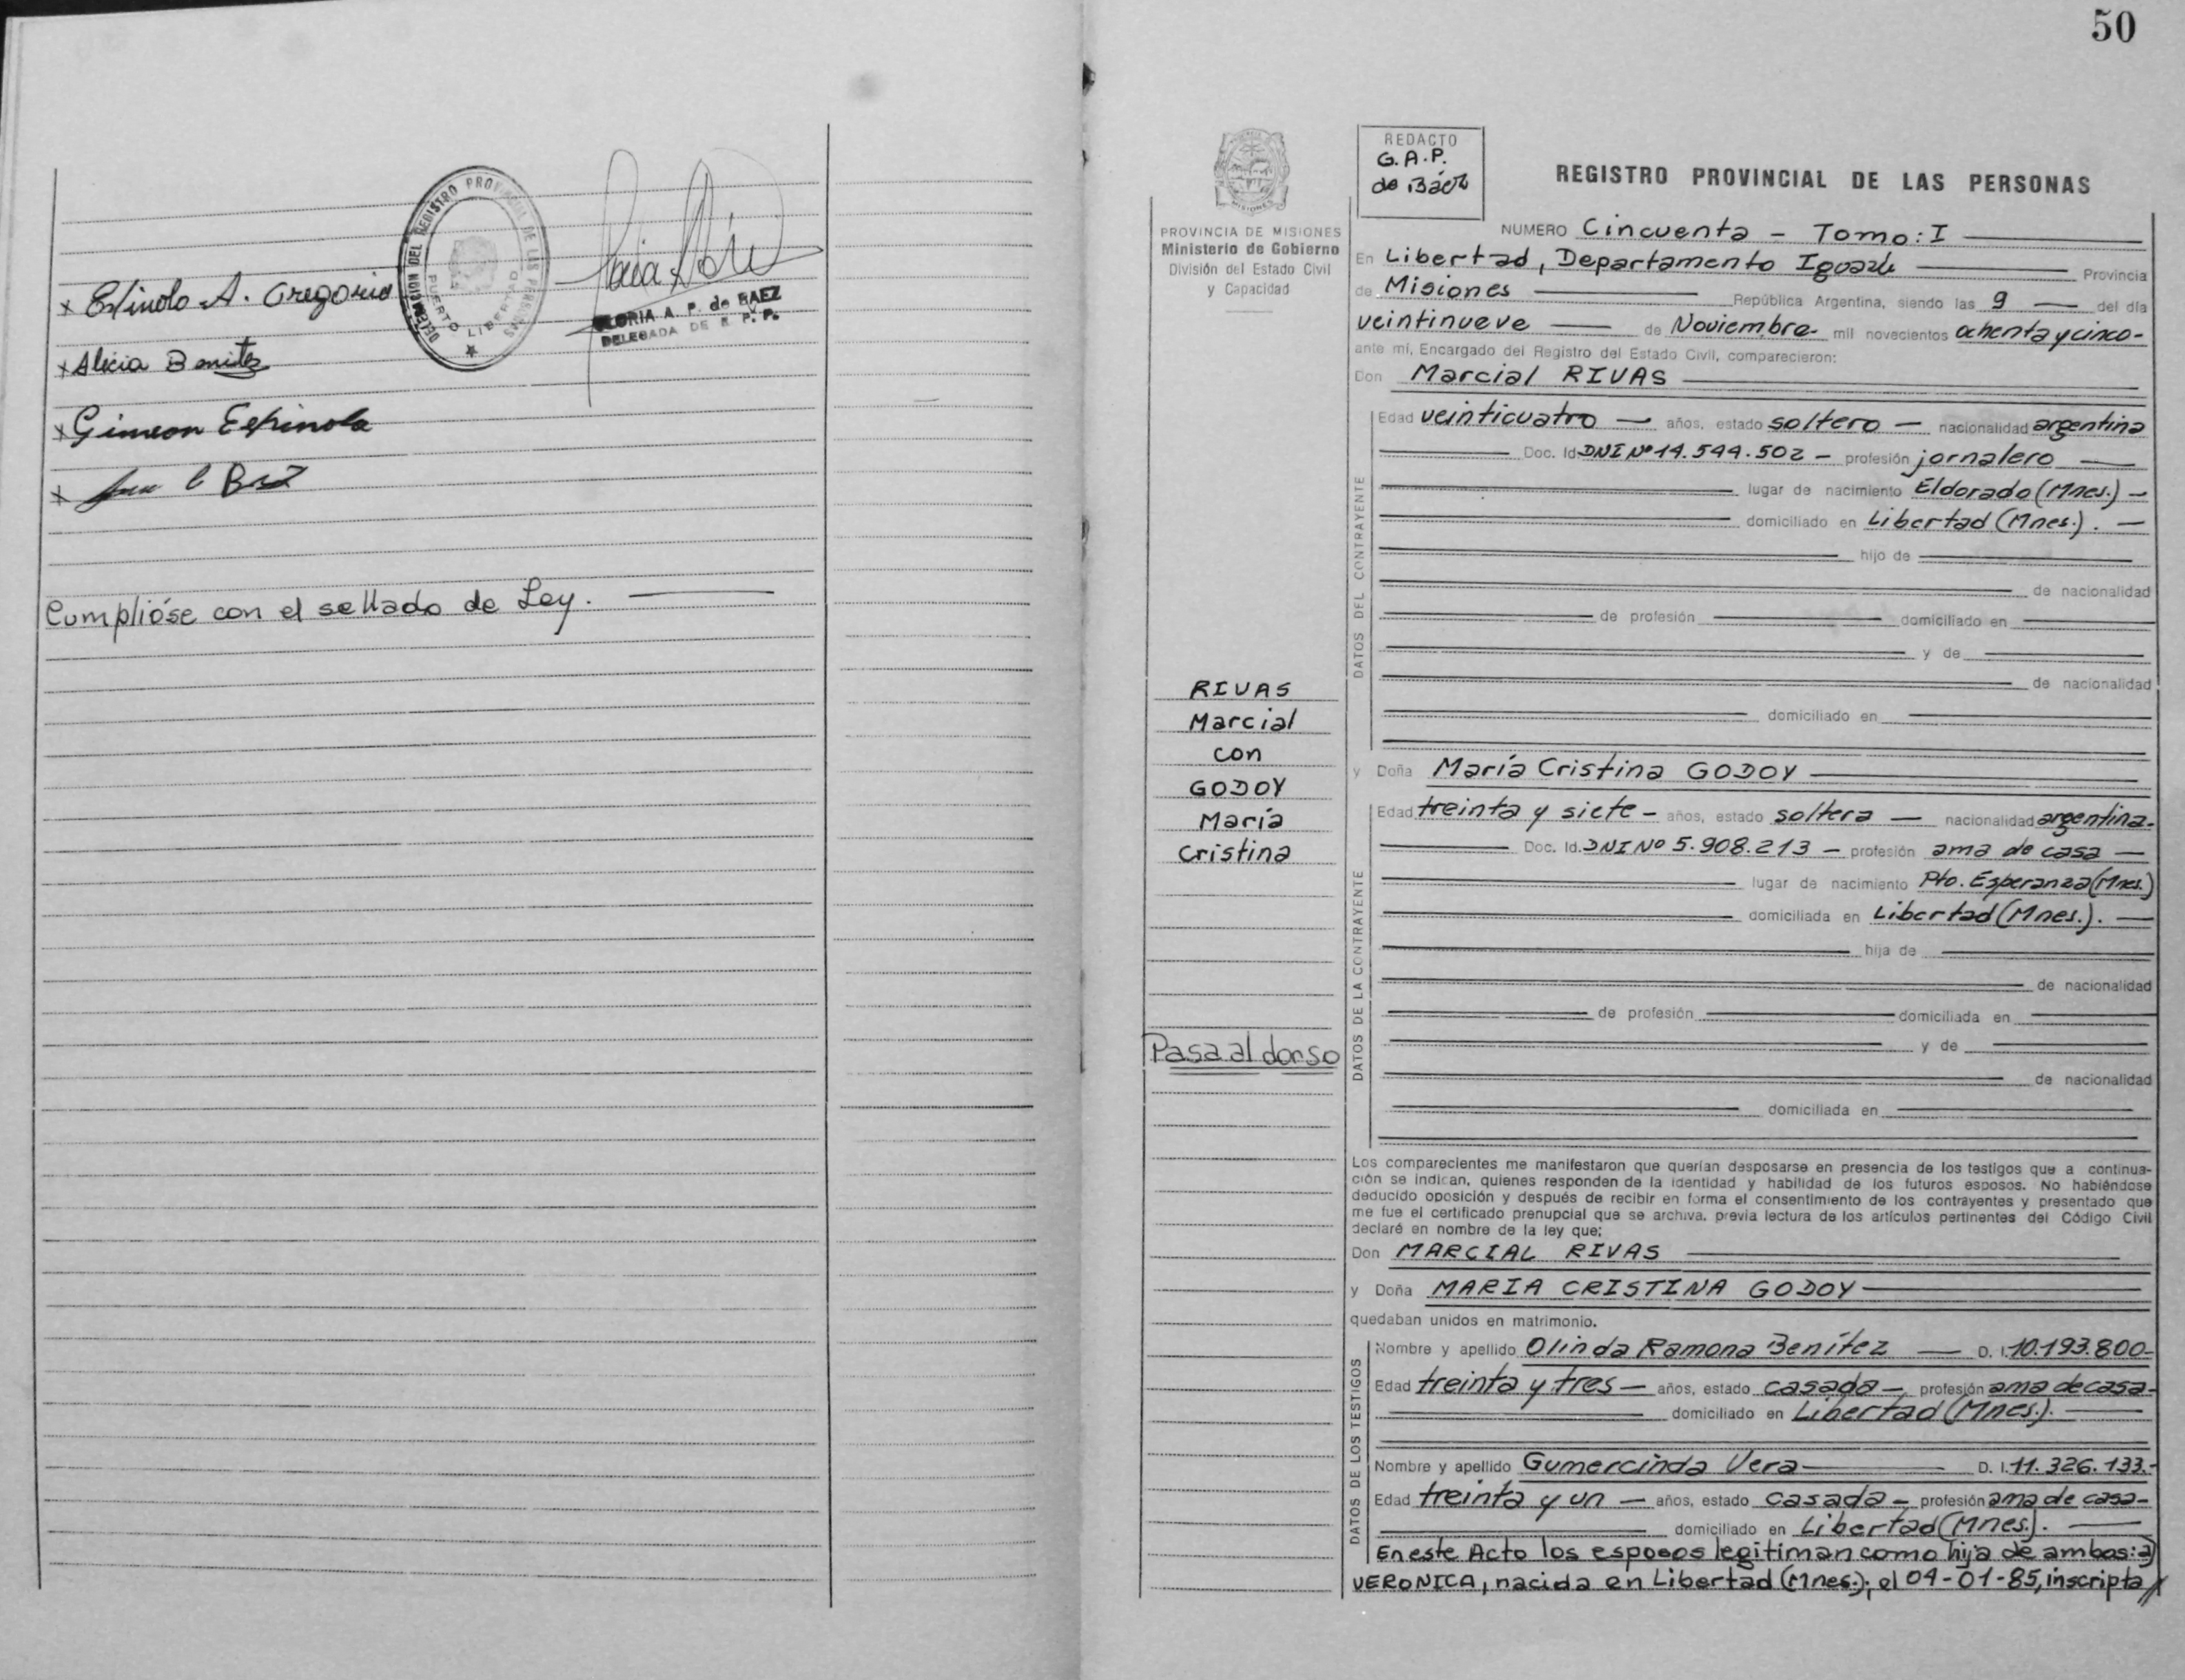 Alicia Benitez
Gimeon Espinola
DELEGACION DEL REGISTRO PROVINCIAL DE LAS PERSONAS
PUERTO LIBERTAD
GLORIA A. P. de BAEZ
DELEGADA DE R. P. P.
Cumplióse con el sellado de Ley.
50
PROVINCIA DE MISIONES
Ministerio de Gobierno
División del Estado Civil
y Capacidad
RIVAS
Marcial
con
GODOY
María
Cristina
Pasa al dorso
REDACTO
G.A.P.
de Báez
REGISTRO PROVINCIAL DE LAS PERSONAS
NUMERO Cincuenta - Tomo: I
En Libertad, Departamento Iguazú Provincia
de Misiones República Argentina, siendo las 9 del día
veintinueve de Noviembre mil novecientos ochenta y cinco-
ante mí, Encargado del Registro del Estado Civil, comparecieron:
Don Marcial RIVAS
DATOS DEL CONTRAYENTE
Edad veinticuatro años, estado soltero nacionalidad argentina
Doc. Id. DNI Nº 14.544.502 - profesión jornalero
lugar de nacimiento Eldorado (Mnes.) -
domiciliado en Libertad (Mnes.).
hijo de
de nacionalidad
de profesión domiciliado en
y de
de nacionalidad
domiciliado en
y Doña María Cristina GODOY
DATOS DE LA CONTRAYENTE
Edad treinta y siete - años, estado soltera nacionalidad argentina.
Doc. Id. DNI Nº 5.908.213 - profesión ama de casa
lugar de nacimiento Pto. Esperanza (Mnes.)
domiciliada en Libertad (Mnes.).
hija de
de nacionalidad
de profesión domiciliada en
y de
de nacionalidad
domiciliada en
Los comparecientes me manifestaron que querían desposarse en presencia de los testigos que a continua-
ción se indican, quienes responden de la identidad y habilidad de los futuros esposos. No habiéndose
deducido oposición y después de recibir en forma el consentimiento de los contrayentes y presentado que
me fue el certificado prenupcial que se archiva, previa lectura de los artículos pertinentes del Código Civil
declaré en nombre de la ley que;
Don MARCIAL RIVAS
y Doña MARIA CRISTINA GODOY
quedaban unidos en matrimonio.
DATOS DE LOS TESTIGOS
Nombre y apellido Olinda Ramona Benítez D. I. 10.193.800-
Edad treinta y tres - años, estado casada - profesión ama de casa-
domiciliado en Libertad (Mnes.).
Nombre y apellido Gumercinda Vera D. I. 11.326.133.-
Edad treinta y un - años, estado casada - profesión ama de casa-
domiciliado en Libertad (Mnes.).
En este Acto los esposos legitiman como hija de ambos: a)
VERONICA, nacida en Libertad (Mnes.), el 04-01-85, inscripta //